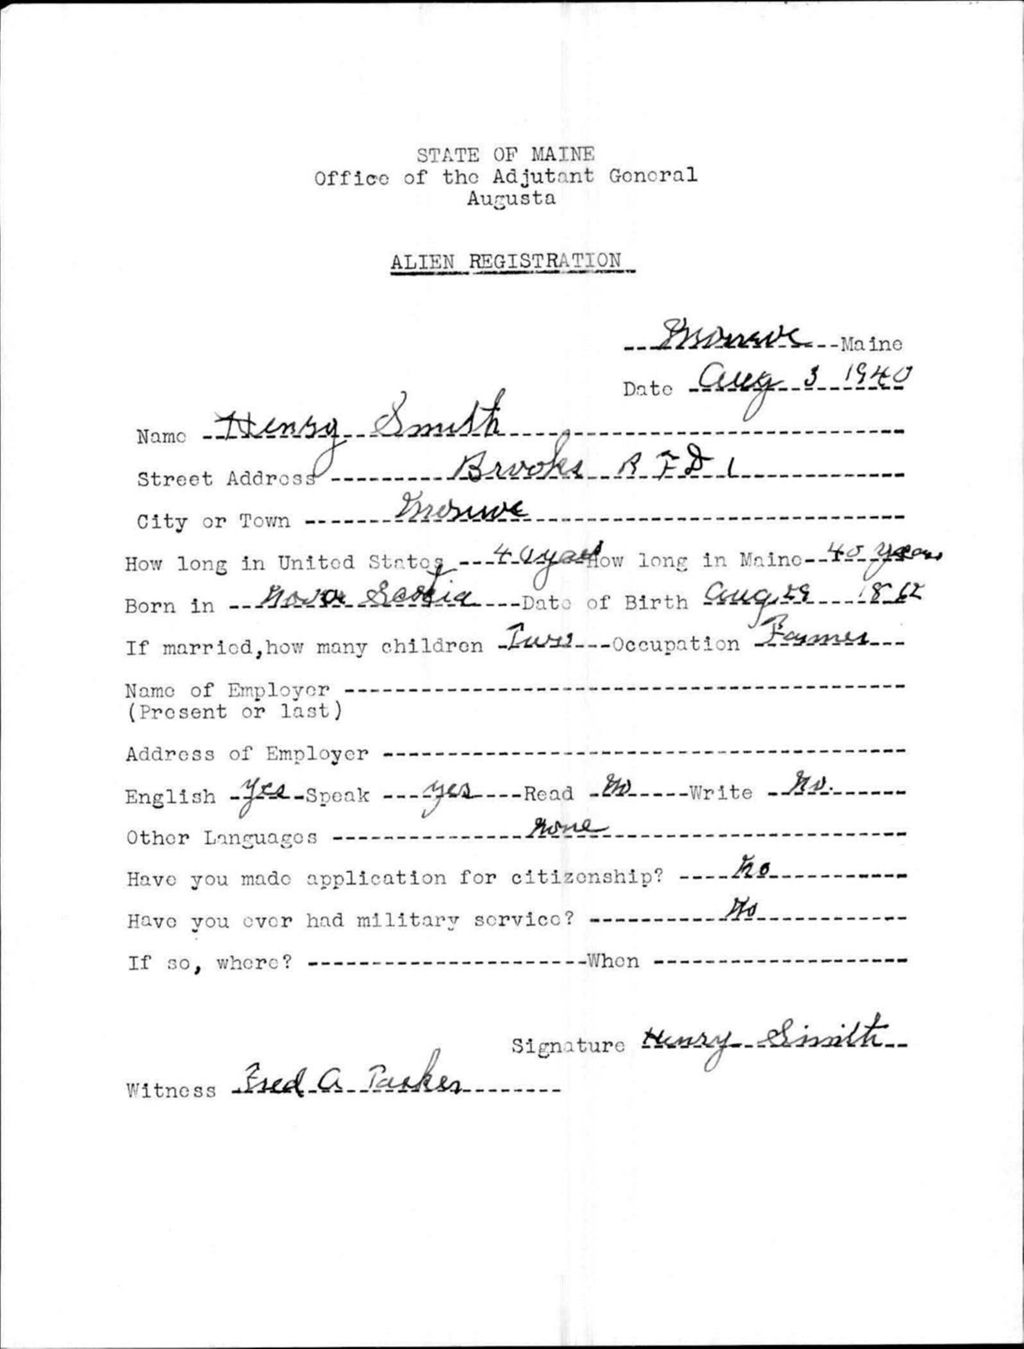 STATE OF MAINE
Office of the Adjutant General
Augusta
ALIEN REGISTRATION
Monroe Maine
Date Aug 3 1940
Name Henry Smith
Street Address Brooks R F D 1
City or Town Monroe
How long in United States 40 years How long in Maine 40 years
Born in Nova Scotia Date of Birth Aug 29 1862
If married, how many children Two Occupation Farmer
Name of Employer
(Present or last)
Address of Employer
English Yes Speak yes Read No Write No.
Other Languages None
Have you made application for citizenship? No
Have you ever had military service? No
If so, where? When
Signature Henry Smith
Witness Fred A Parker